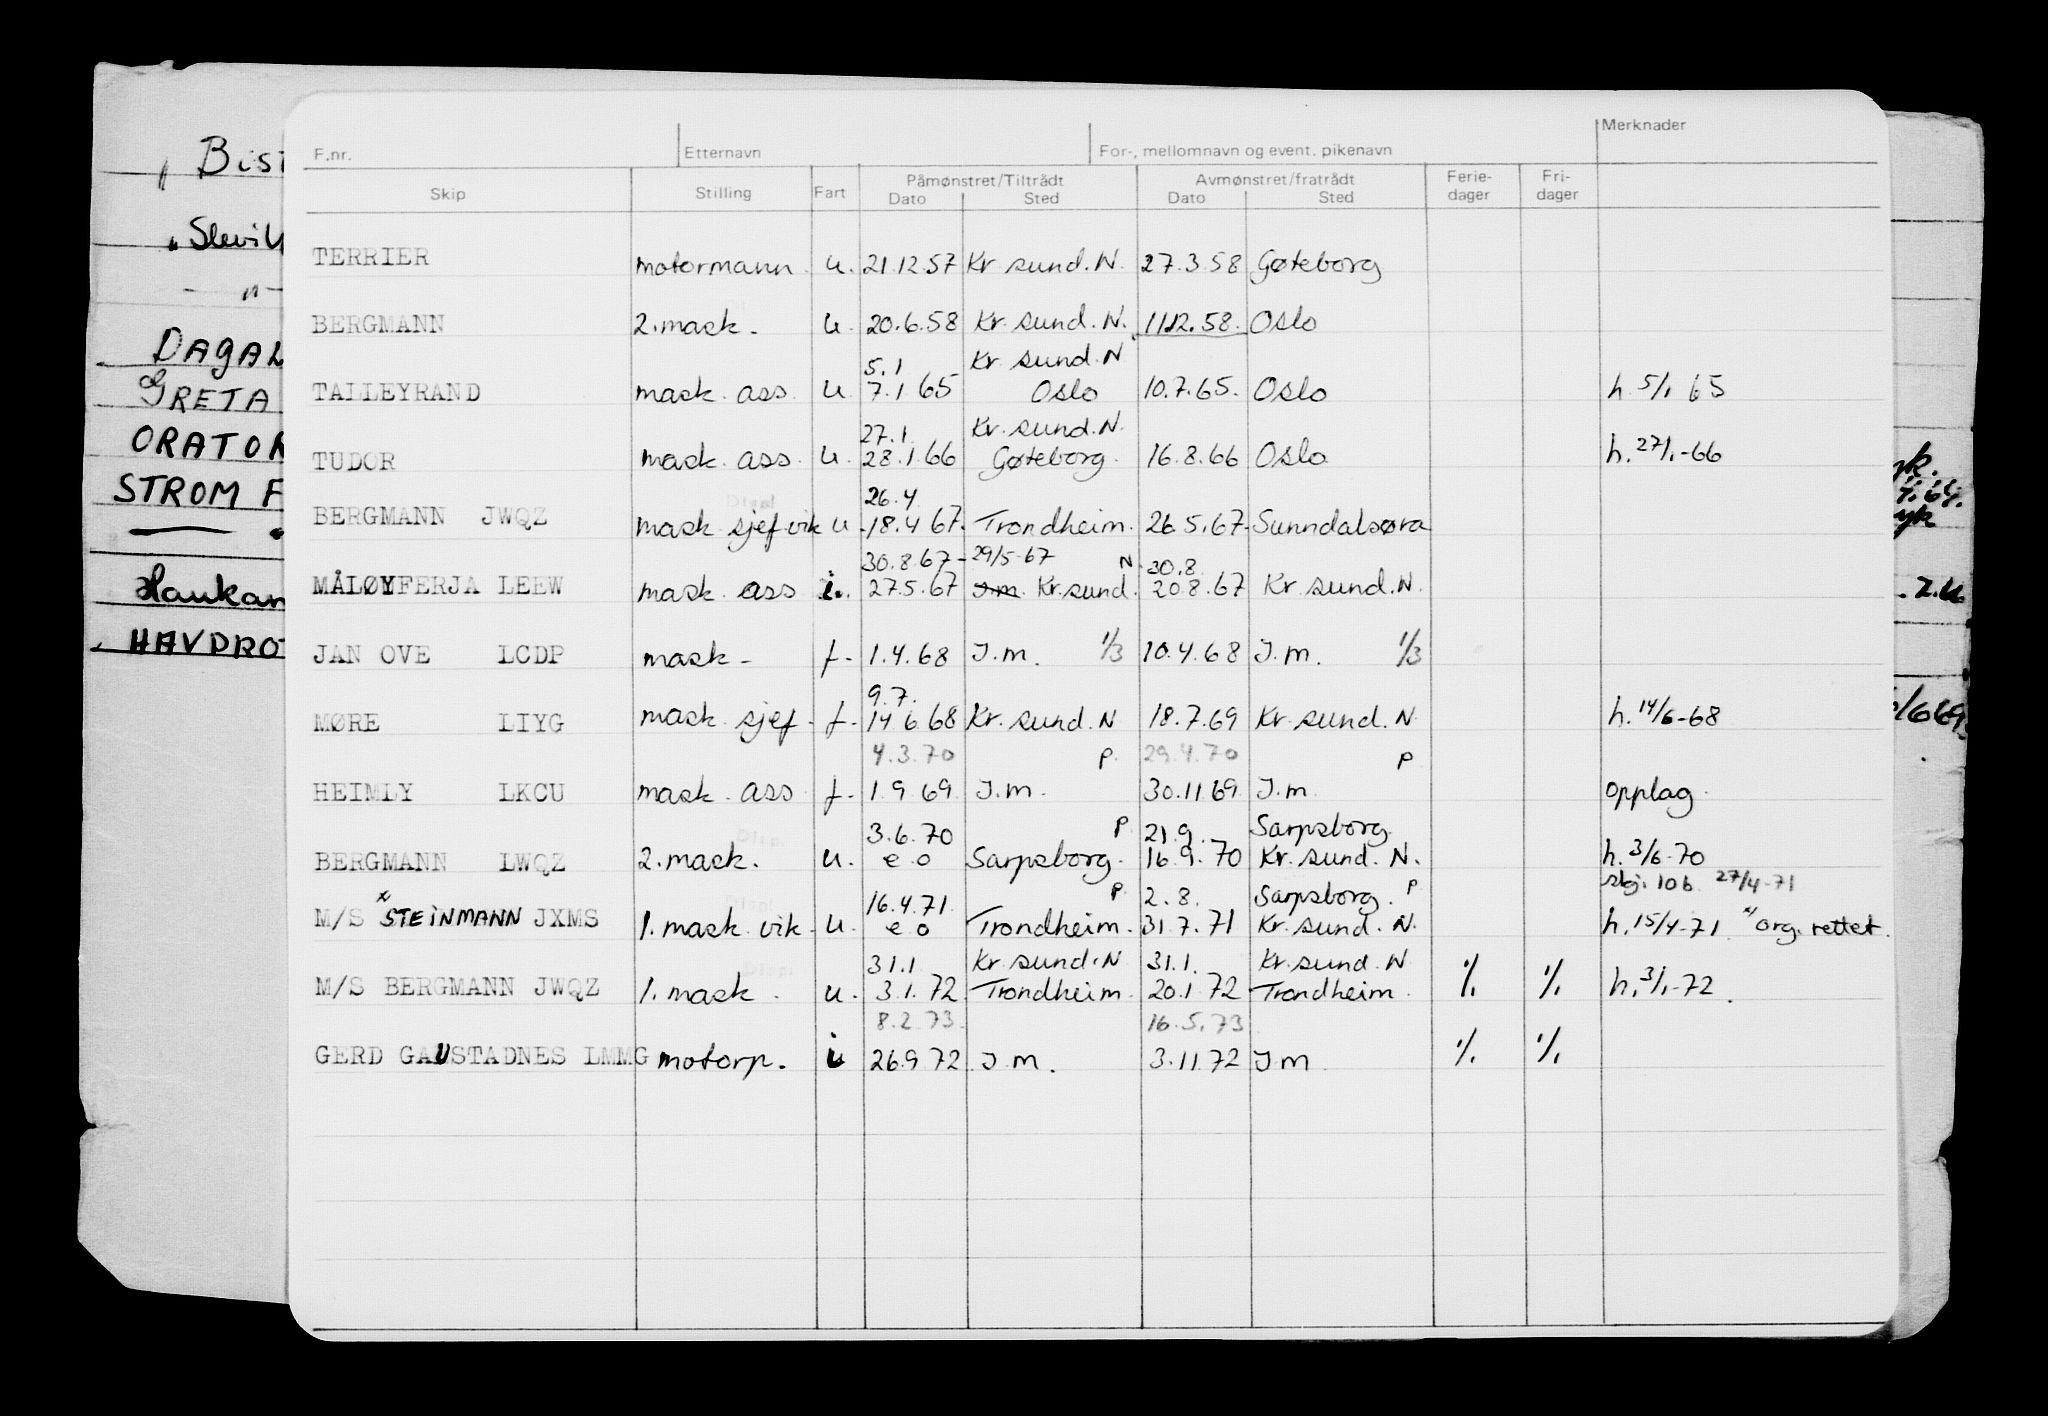 Merknader
F.nr. Etternavn For-, mellomnavn og event. pikenavn
Skip Stilling Fart Påmønstret/Tiltrådt Avmønstret/fratrådt Ferie-dager Fri-dager
Dato Sted Dato Sted
TERRIER motormann u. 21.12.57 Kr sund. N. 27.3.58 Gøteborg
BERGMANN 2. mask. u. 20.6.58 Kr. sund. N. 1112.58. Oslo
5.1 Kr sund. N
TALLEYRAND mask. ass. u. 7.1 65 Oslo 10.7.65. Oslo h. 5/1 65
27.1. Kr. sund. N.
TUDOR mask. ass. u. 28.1.66 Gøteborg. 16.8.66 Oslo h. 27/1-66
26.4
BERGMANN JWQZ mask sjef vik u. 18.4 67. Trondheim. 26.5.67- Sunndalsøra
30.8.67- 29/5-67 N. 30.8.
MÅLØYFERJA LEEW mask. ass i. 27.5.67 I.m. Kr. sund. 20.8.67 Kr. sund. N.
JAN OVE LCDP mask - f. 1.4.68 I.m. 1/3 10.4.68 I.m. 1/3
9.7.
MØRE LIYG mask. sjef. f. 14 6.68 Kr. sund. N 18.7.69 Kr. sund. N. h. 14/6-68
4.3.70 P. 29.4.70 P
HEIMLY LKCU mask. ass f. 1.9 69. I.m. 30.11 69 I.m opplag.
3.6.70 P. 21.9. Sarpsborg.
BERGMANN LWQZ 2. mask. u. e o Sarpsborg. 16.9.70 Kr. sund. N. h. 3/6-70
16.4.71. P. 2.8. Sarpsborg. P 27/4-71
M/S x STEINMANN JXMS 1. mask. vik. u. e o Trondheim. 31.7.71 Kr. sund. N. h. 15/4-71. x/ org. rettet.
31.1 Kr. sund. N 31.1. Kr. sund. N
M/S BERGMANN JWQZ 1. mask. u. 3.1.72. Trondheim. 20.1 72 Trondheim. ·/. ·/. h. 3/1-72.
8.2.73. 16.5.73
GERD GAUSTADNES LMMG motorp. i 26.9 72 I.m. 3.11.72 I m ·/. ·/.
" Bis
" Slevi
-"-
DAGAL
GRETA
ORATOR
STROM F
Haukan
HAVDRO